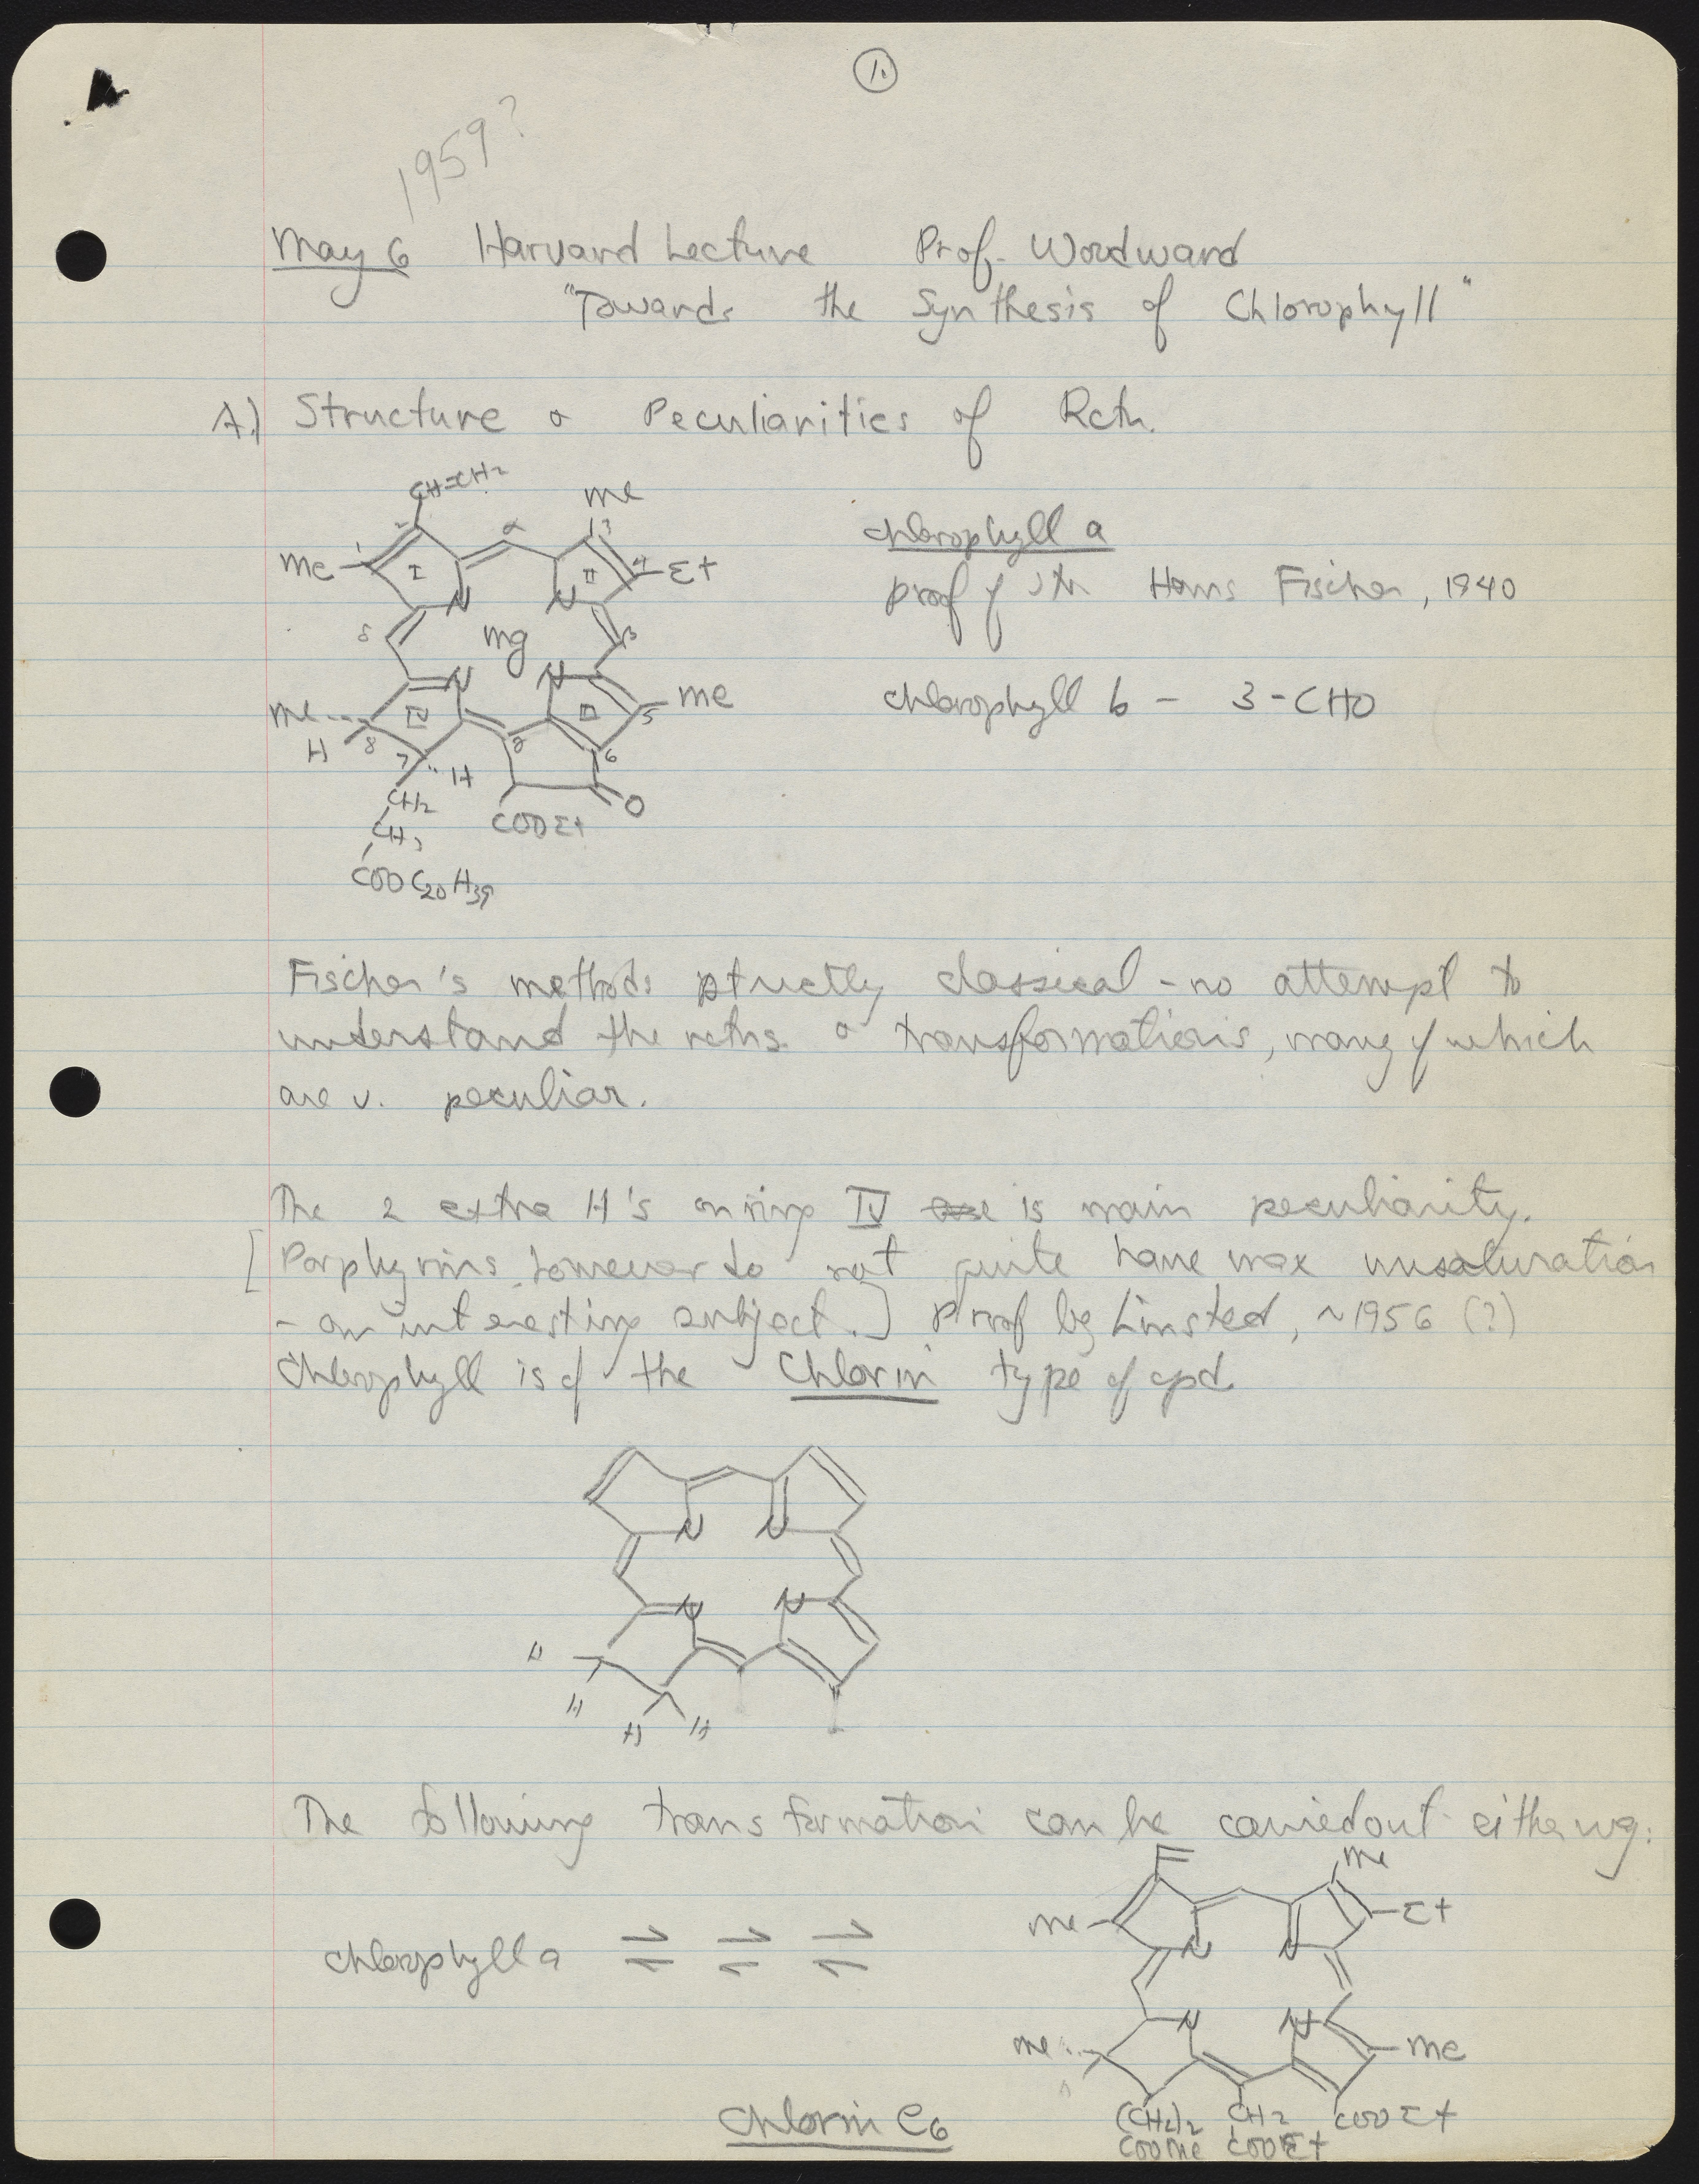 1.
1959?
May 6 Harvard Lecture Prof. Woodward
"Towards the Synthesis of Chlorophyll"
A.) Structure & Peculiarities of Rctn.
CH=CH2
Me
2 α 3
Me 1 I II 4 Et
N N
δ Mg β
N N
Me IV III 5 Me
H 8 7 H γ 6
CH2 O
CH2 COOEt
COOC20H39
chlorophyll a
proof of str Hans Fischer, 1940
chlorophyll b - 3-CHO
Fischer's methods strictly classical - no attempt to
understand the rctns. & transformations, many of which
are v. peculiar.
The 2 extra H's on ring IV is main peculiarity.
[Porphyrins however do not quite have max unsaturation
- an interesting subject.] Proof by Linsted, ~1956 (?)
Chlorophyll is of the Chlorin type of cpd.
N N
N N
H
H
H H
The following transformation can be carried out either way:
Me
Me Et
N N
chlorophyll a ⇌ ⇌ ⇌
N N
Me Me
(CH2)2 CH2 COOEt
COOMe COOEt
Chlorin e6